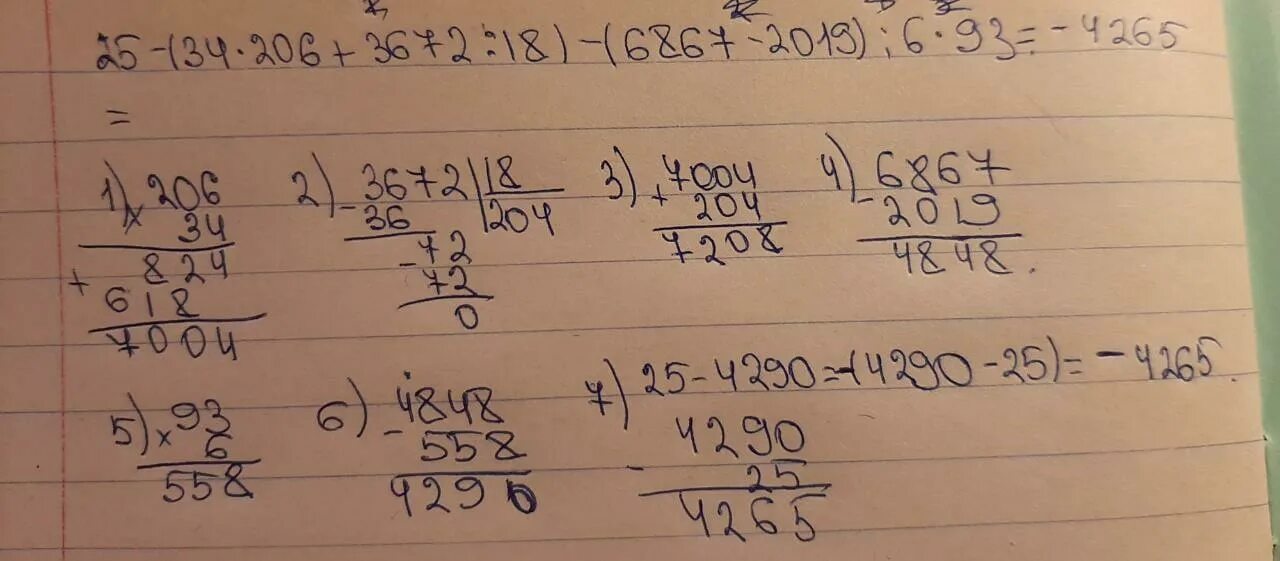 25-(34·206+3672:18)-(6867-2019):6·93=-4265
=
1) 206 2) 3672 18 3) 7004 4) 6867
× 34 - 36 204 + 204 - 2019
824 - 72 7208 4848.
+ 618 72
7004 0
5) 93 6) 4848 7) 25-4290=-(4290-25)=-4265.
× 6 - 558 4290
558 4290 - 25
4265